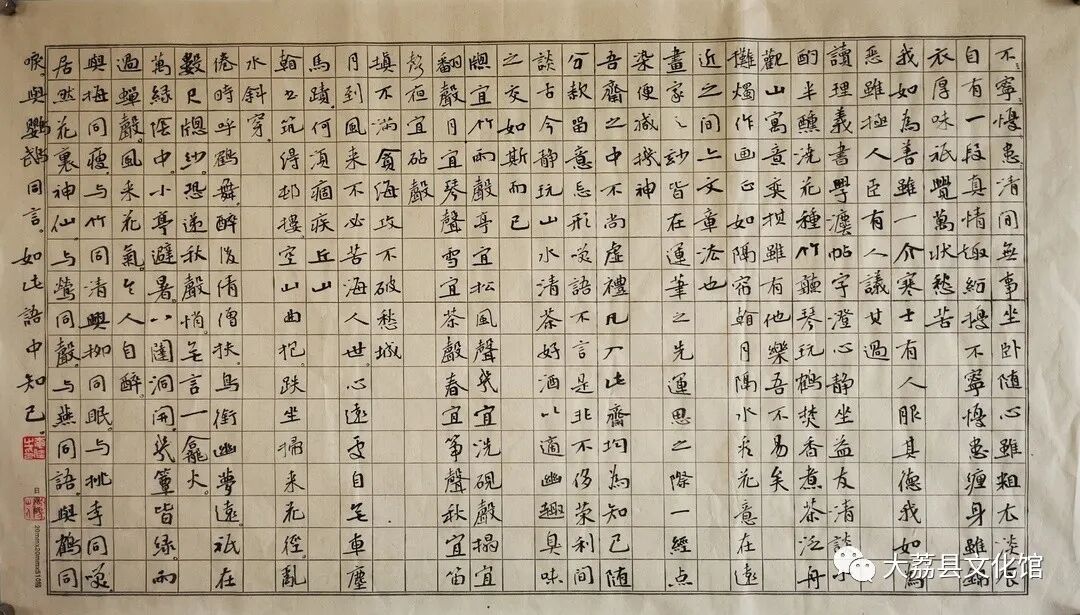 不寧憂患清间無事坐卧随心雖粗衣淡飯
自有一段真情趣紛擾不寧憂患纏身雖錦
衣厚味祇覺萬狀愁苦
我如為善雖一介寒士有人服其德我如為
惡雖極人臣有人議其過
讀理義書學法帖字澄心靜坐益友清談小
酌半醺澆花種竹聽琴玩鶴焚香煮茶泛舟
觀山寓意奕棋雖有他樂吾不易矣
攤燭作画正如隔宿翰月隔水看花意在遠
近之间亦文章法也
畫家之妙皆在運筆之先運思之際一經点
染便減機神
吾齋之中不尚虛禮凡入此齋均為知己随
分款留意忘形笑語不言是非不侈荣利间
談古今静玩山水清茶好酒以適幽趣臭味
之交如斯而已
牕宜竹雨聲亭宜松風聲几宜洗硯聲榻宜
翻聲月宜琴聲雪宜茶聲春宜箏聲秋宜笛
聲夜宜砧聲
填不滿貪海攻不破愁城
月到風来不必苦海人世心遠處自無車塵
馬蹟何須痼疾丘山
翰筑得邨樓空山曲抱趺坐掃来花徑亂
水斜穿
倦時呼鶴舞醉後倩僧扶鳥銜幽夢遠祇在
數尺牕紗。蛩遞秋聲悄無言一龕火。
萬緑陰中。小亭避暑。八闥洞開。几簟皆緑。雨
過蟬聲。風来花氣。令人自醉。
與梅同瘦与竹同清與柳同眠与桃李同笑
居然花裏神仙。与鶯同聲。与燕同語。與鶴同
唳。與鸚鵡同言。如此語中知己。
20mmx20mm
大荔县文化馆